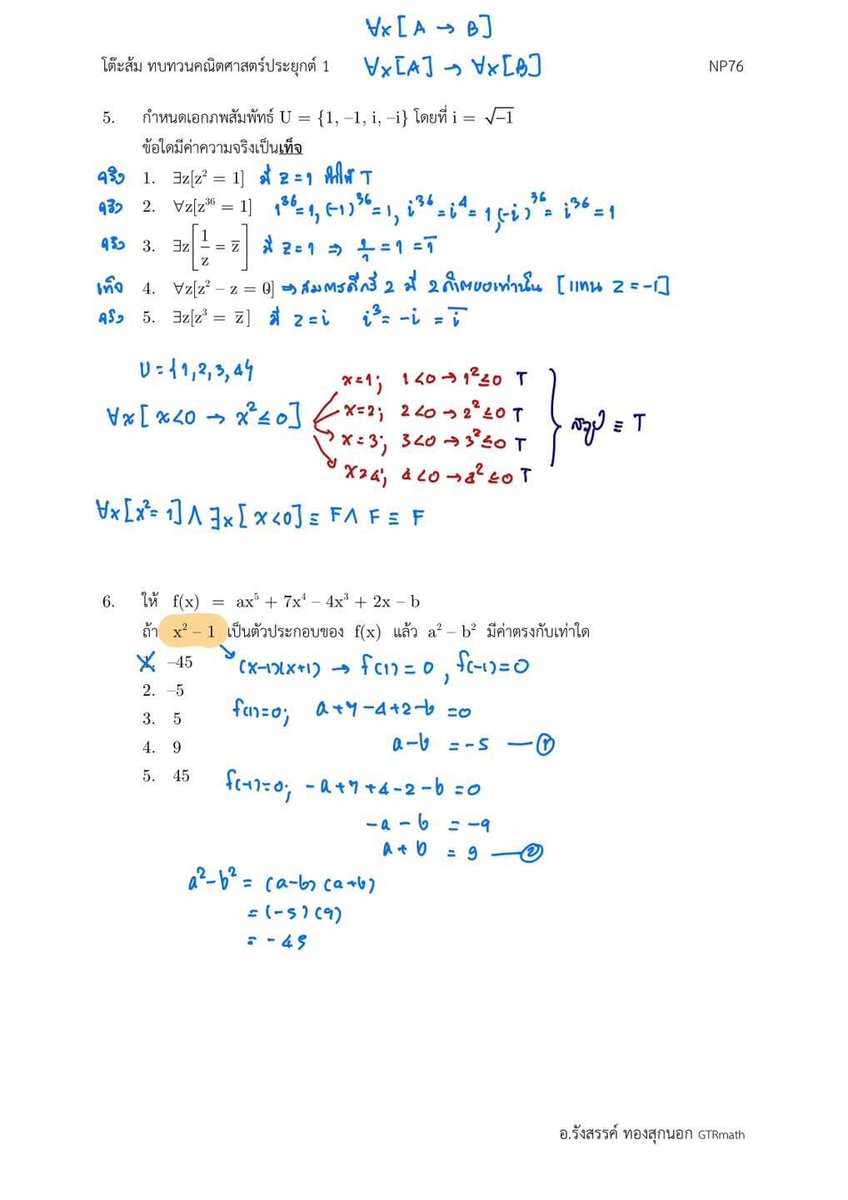 ∀x[A → B]
โต๊ะส้ม ทบทวนคณิตศาสตร์ประยุกต์ 1 ∀x[A] → ∀x[B] NP76
5. กำหนดเอกภพสัมพัทธ์ U = {1, –1, i, –i} โดยที่ i = √–1
ข้อใดมีค่าความจริงเป็นเท็จ
จริง 1. ∃z[z² = 1] มี z=1 ทำให้ T
จริง 2. ∀z[z³⁶ = 1] 1³⁶=1, (-1)³⁶=1, i³⁶=i⁴=1, (-i)³⁶=i³⁶=1
จริง 3. ∃z[1/z = z̅] มี z=1 ⇒ 1/1 = 1 = 1̅
เท็จ 4. ∀z[z² – z = 0] ⇒ สมการดีกรี 2 มี 2 คำตอบเท่านั้น [แทน z=-1]
จริง 5. ∃z[z³ = z̅] มี z=i i³=-i = i̅
U={1,2,3,4}
x=1; 1<0→1²≤0 T
∀x[x<0 → x²≤0] x=2; 2<0→2²≤0 T
x=3; 3<0→3²≤0 T สรุป ≡ T
x=4; 4<0→4²≤0 T
∀x[x²=1]∧∃x[x<0] ≡ F∧F ≡ F
6. ให้ f(x) = ax⁵ + 7x⁴ – 4x³ + 2x – b
ถ้า x² – 1 เป็นตัวประกอบของ f(x) แล้ว a² – b² มีค่าตรงกับเท่าใด
1. –45 (x-1)(x+1) → f(1)=0, f(-1)=0
2. –5
3. 5 f(1)=0; a+7-4+2-b=0
4. 9 a-b = -5 —①
5. 45 f(-1)=0; -a+7+4-2-b=0
-a-b = -9
a+b = 9 —②
a²-b² = (a-b)(a+b)
= (-5)(9)
= -45
อ.รังสรรค์ ทองสุกนอก GTRmath